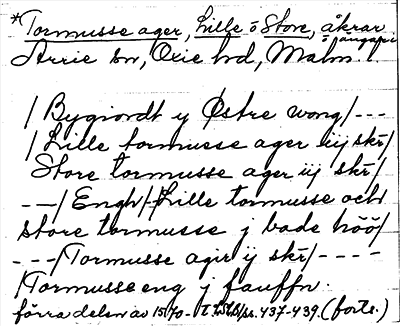 *Tormusse ager, Lille o Store, åkrar
o ängar i
Arrie sn, Oxie hd, Malm. l.
/ Bygiordt y Østre wong/---
/ Lille tormusse ager iij skr/
Store tormusse ager iij skr/
---/ Engh/ Lille tormusse och
store tormusse j bade höö/
---/ Tormusse agir ij skr/----
/ Tormusse eng j fauffn.
förra delen av 1570- t. s. 437-439. (forts.)